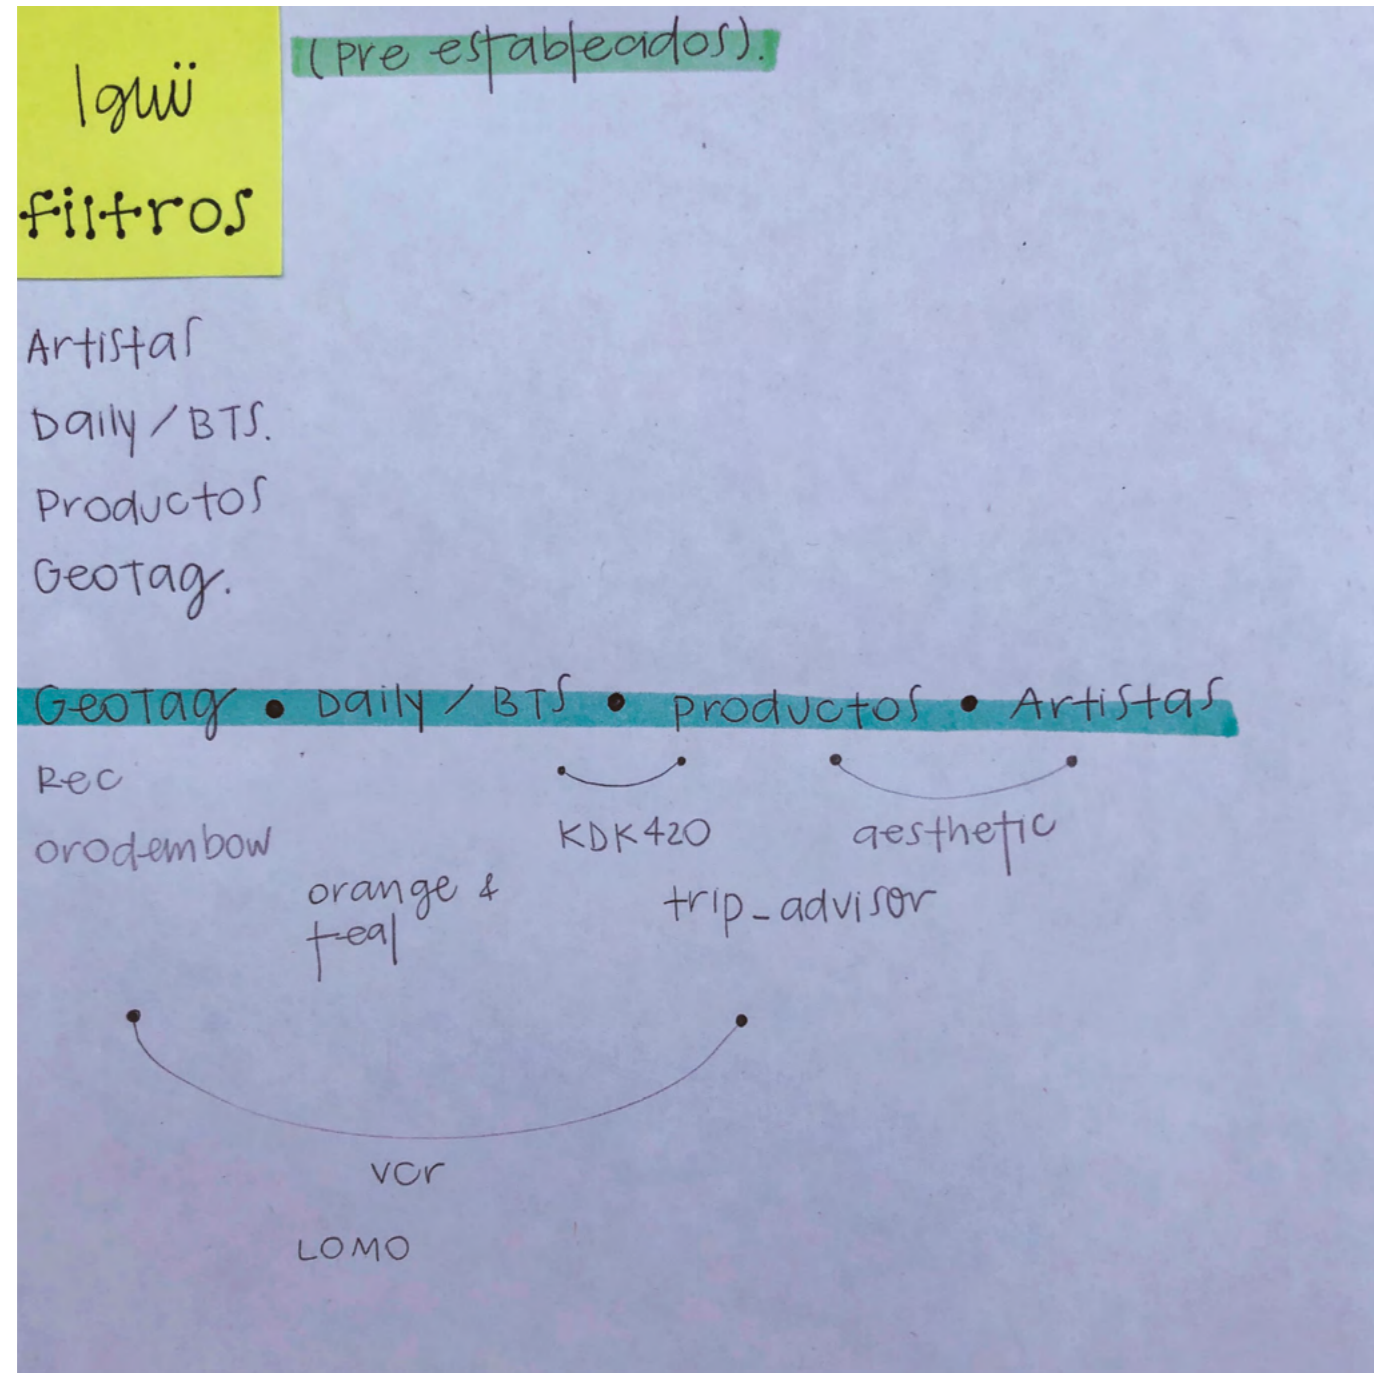 Iguü
filtros
(pre establecidos).
Artistas
Daily / BTS.
Productos
Geotag.
Geotag • Daily / BTS • productos • Artistas
Rec
orodembow
KDK420
aesthetic
orange &
teal
trip_advisor
vcr
LOMO